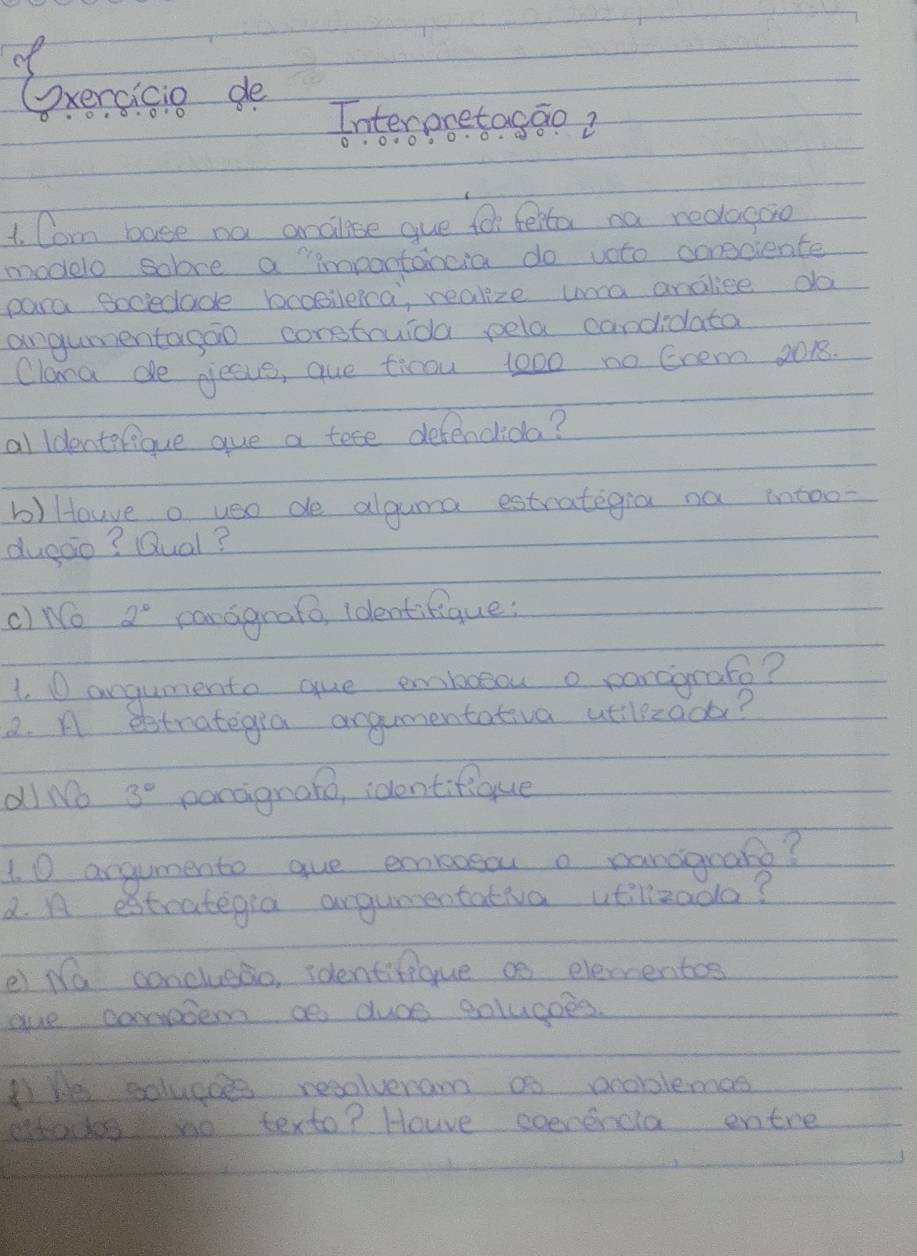 Exercício de
Interpretação?
1. Com base na análise que foi feita na redação
modelo sobre a "importância do voto consciente
para sociedade brasileira", realize uma análise da
argumentação construída pela candidata
Clara de jesus, que ticou 1000 no Enem 2018.
a) Identifique que a tese defendida?
b) Houve o uso de alguma estratégia na intro-
dução? Qual?
c) No 2° parágrafo, identifique:
1. O argumento que embasou o parágrafo?
2. A estratégia argumentativa utilizada?
d) No 3° parágrafo, identifique
1. O argumento que embasou o parágrafo?
2. A estratégia argumentativa utilizada?
e) Na conclusão, identifique os elementos
que compõem as duas soluções.
f) As soluções resolveram os problemas
citados no texto? Houve coerência entre